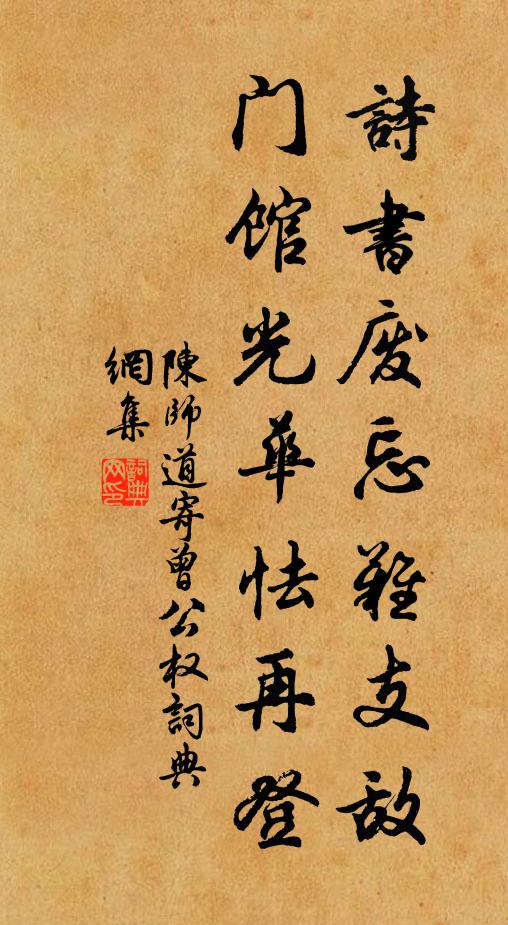 詩書废忘難支敌
门馆光華怯再登
陳师道寄曾公权詞典
網集
詞典
网印